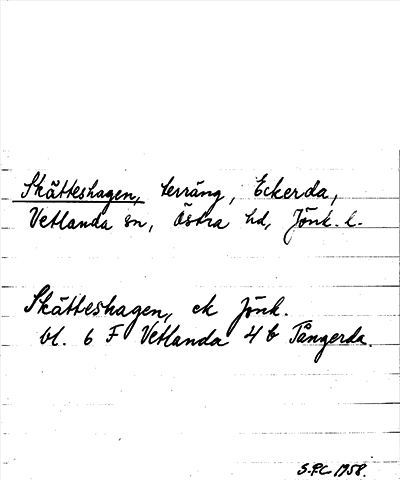 Skätteshagen, terräng, Eckerda,
Vetlanda sn, Östra hd, Jönk. l.
Skätteshagen, ek Jönk.
bl. 6 F Vetlanda 4 b Tångerda.
S.P.C 1958.